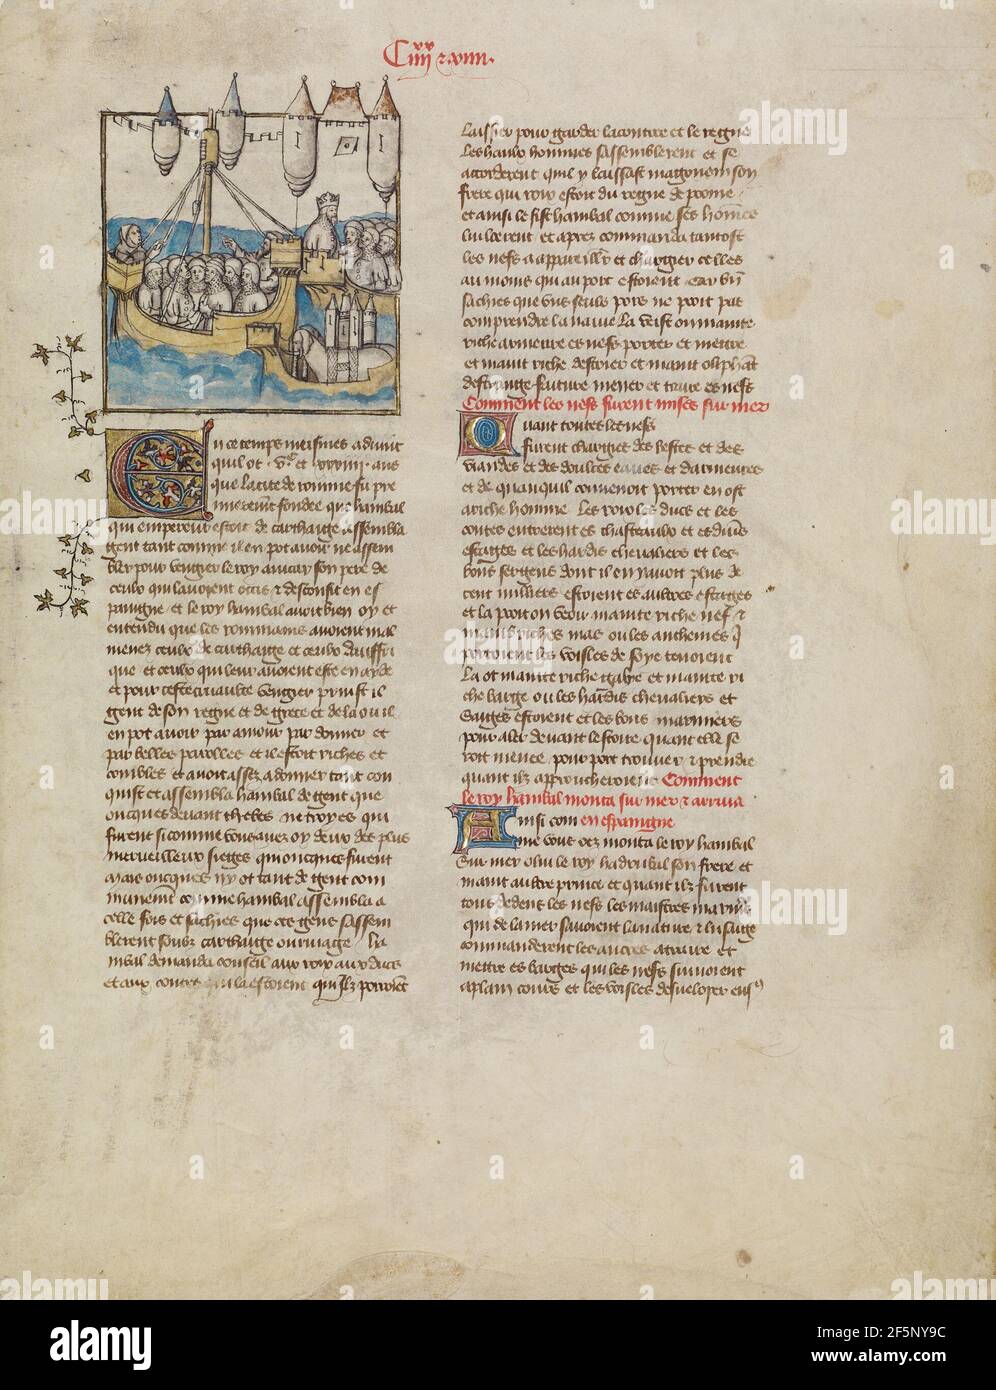 En ce temps meismes advint
quil ot .v.c et xxxiiii. ans
que la cite de romme fu pre
mierement fondee que hanibal
qui empereur estoit de carthaige assembla
gent tant comme il en pot avoir ne assem
bler pour vengier le roy amicar son pere de
ceulx qui lavoient occis et desconfit en es
paingne et le roy hanibal avoit bien oy et
entendu que les rommains avoient mal
menez ceulx de carthaige et ceulx dauffri
que et ceulx qui leur avoient este en ayde
et pour ceste cruaulte vengier prinst il
gent de son regne et de grece et de la ou il
en pot avoir par amour par donner et
par belles parolles et il estoit riches et
combles et avoit assez a donner tant con
quist et assembla hanibal de gent que
oncques devant thebes ne troyes qui
furent si comme vous avez oy deux des plus
merveilleux sieges qui oncques fuent
mais oncques ny ot tant de gent com
munement comme hanibal assembla a
celle fois et sachies que ces gens sassem
blerent soubz carthaige ou rivaige ha
nibal demanda conseil aux roix aux ducs
et aux contes qui la estoient quilz porroient
laissier pour garder la contree et le regne
les haulx hommes sassemblerent et se
accorderent quil y laissast magonem son
frere qui roix estoit du regne de
et ainsi le fist hanibal comme ses hommes
lui loerent et apres commanda tantost
les nefs a appareillier et chargier celles
au moins qui au port estoient car bien
sachies que uns seuls pors ne peut pas
comprendre la navie La veist on mainte
riche armeure es nefs porter et mettre
et maint riche destrier et maint oliphant
destrange faiture mener et traire es nefs
Comment les nefs furent mises sur mer
Quant toutes les nefs
furent chargies des bestes et des
viandes et des doulces eaues et darmeures
et de quanquil convenoit porter en ost
a riche homme les rois les ducs et les
contes entrerent es chasteaulx et es divers
estages et les hardis chevaliers et les
bons sergens dont il en y avoit plus de
cent milliers estoient es aultres estages
et la peut on veoir mainte riche nef et
maint riches mas ou les anthemes qui
portoient les voisles de soye tenoient
La ot mainte riche galye et mainte ri
che barge ou les hardis chevaliers et
saiges estoient et les bons marinniers
pour aler devant lestoire quant elle se
roit meneë pour port trouver et prendre
quant ilz approucheroient Comment
le roy hanibal monta sur mer et arriva
Ainsi com en espaingne
me vous oez monta le roy hanibal
sur mer o lui le roy hadrubal son frere et
maint aultre prince et quant ilz furent
tous dedens les nefs les maistres mariniers
qui de la mer savoient la nature et lusaige
commanderent les ancres atraire et
mettre es barges qui les nefs suivoient
a plain cours et les voisles desveloper
alamy
Image ID: 2F5NY9C
www.alamy.com